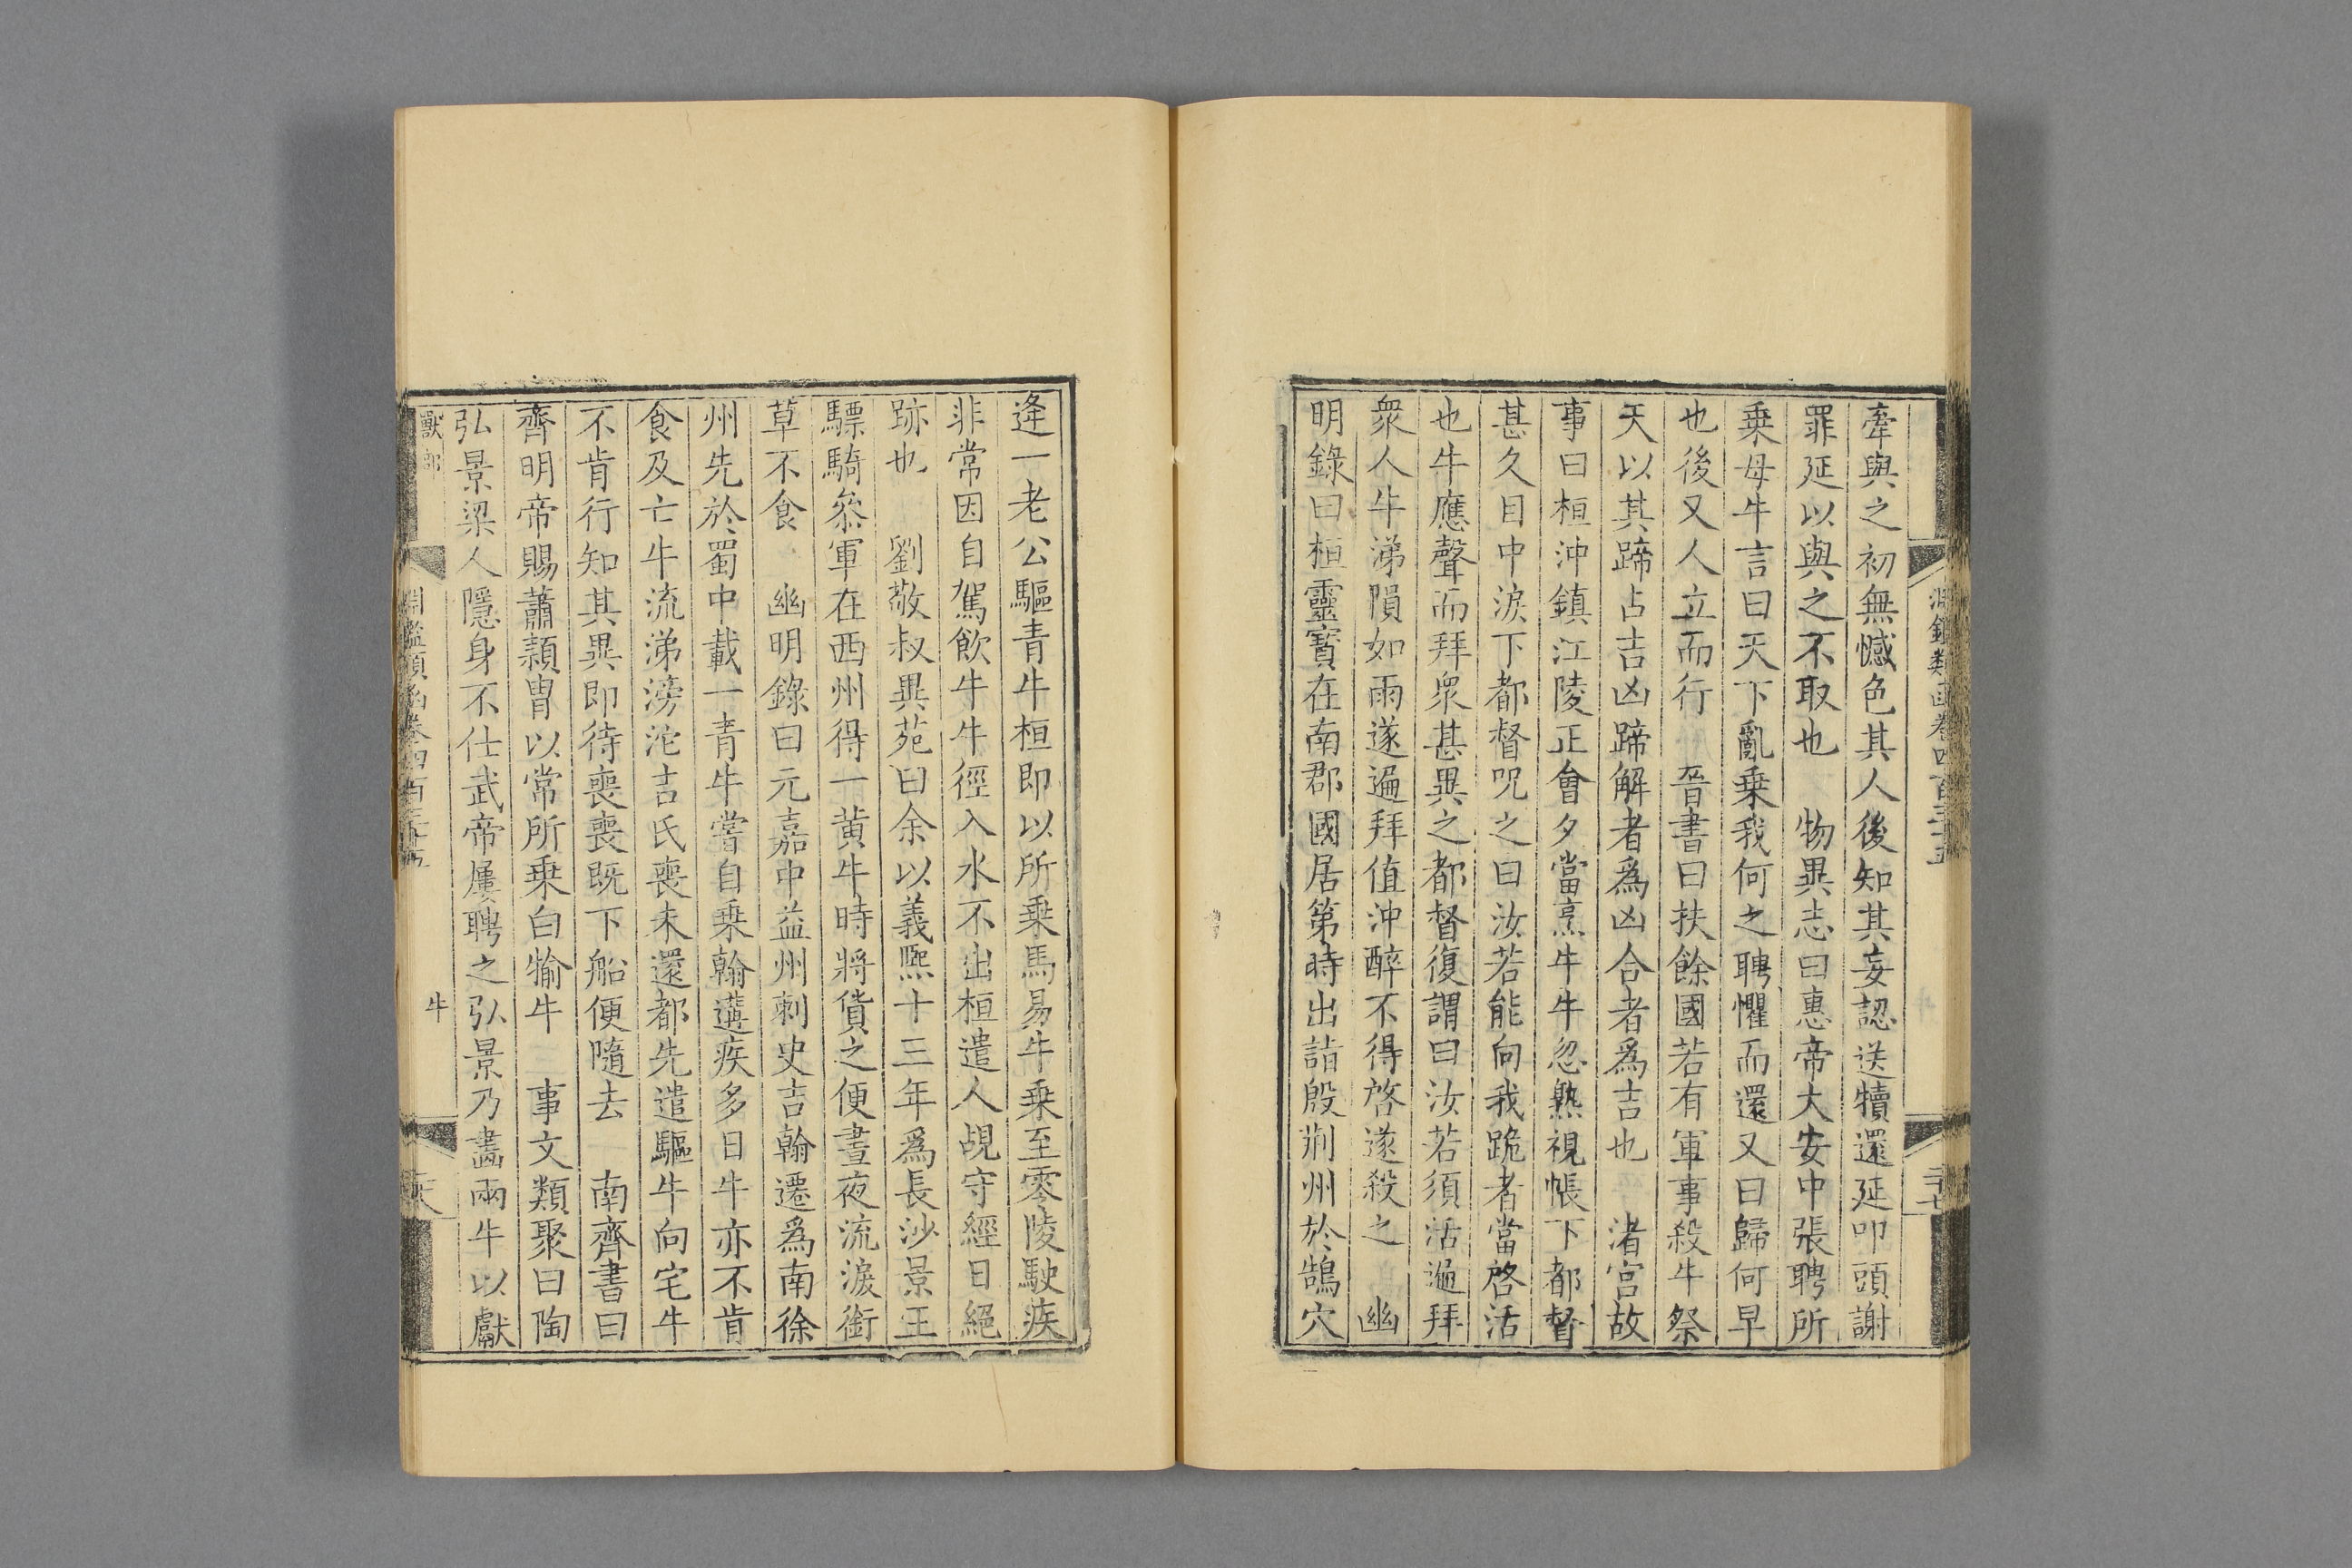 淵鑑類函卷四百三十五
牽與之初無憾色其人後知其妄認送犢還延叩頭謝
罪延以與之不取也　物異志曰惠帝大安中張聘所
乗母牛言曰天下亂乗我何之聘懼而還又曰歸何早
也後又人立而行　晉書曰扶餘國若有軍事殺牛祭
天以其蹄占吉凶蹄解者爲凶合者爲吉也　渚宮故
事曰桓沖鎮江陵正會夕當烹牛牛忽熟視帳下都督
甚久目中淚下都督呪之曰汝若能向我跪者當啓活
也牛應聲而拜衆甚異之都督復謂曰汝若須活遍拜
衆人牛涕隕如雨遂遍拜值沖醉不得啓遂殺之　幽
明錄曰桓靈寳在南郡國居第時出詣殷荆州於鵠穴
逢一老公驅青牛桓即以所乗馬易牛乗至零陵駛疾
非常因自駕飲牛牛徑入水不出桓遣人覘守經日絕
跡也　劉敬叔異苑曰余以義熙十三年爲長沙景王
驃騎叅軍在西州得一黄牛時將貨之便晝夜流淚銜
草不食　幽明錄曰元嘉中益州刺史吉翰遷爲南徐
州先於蜀中載一青牛嘗自乗翰遘疾多日牛亦不肯
食及亡牛流涕滂沱吉氏喪未還都先遣驅牛向宅牛
不肯行知其異即待喪喪既下船便隨去　南齊書曰
齊明帝賜蕭頴冑以常所乗白牏牛　事文類聚曰陶
弘景梁人隱身不仕武帝屢聘之弘景乃畵兩牛以獻
獸部　淵鑑類函卷四百三十五　牛